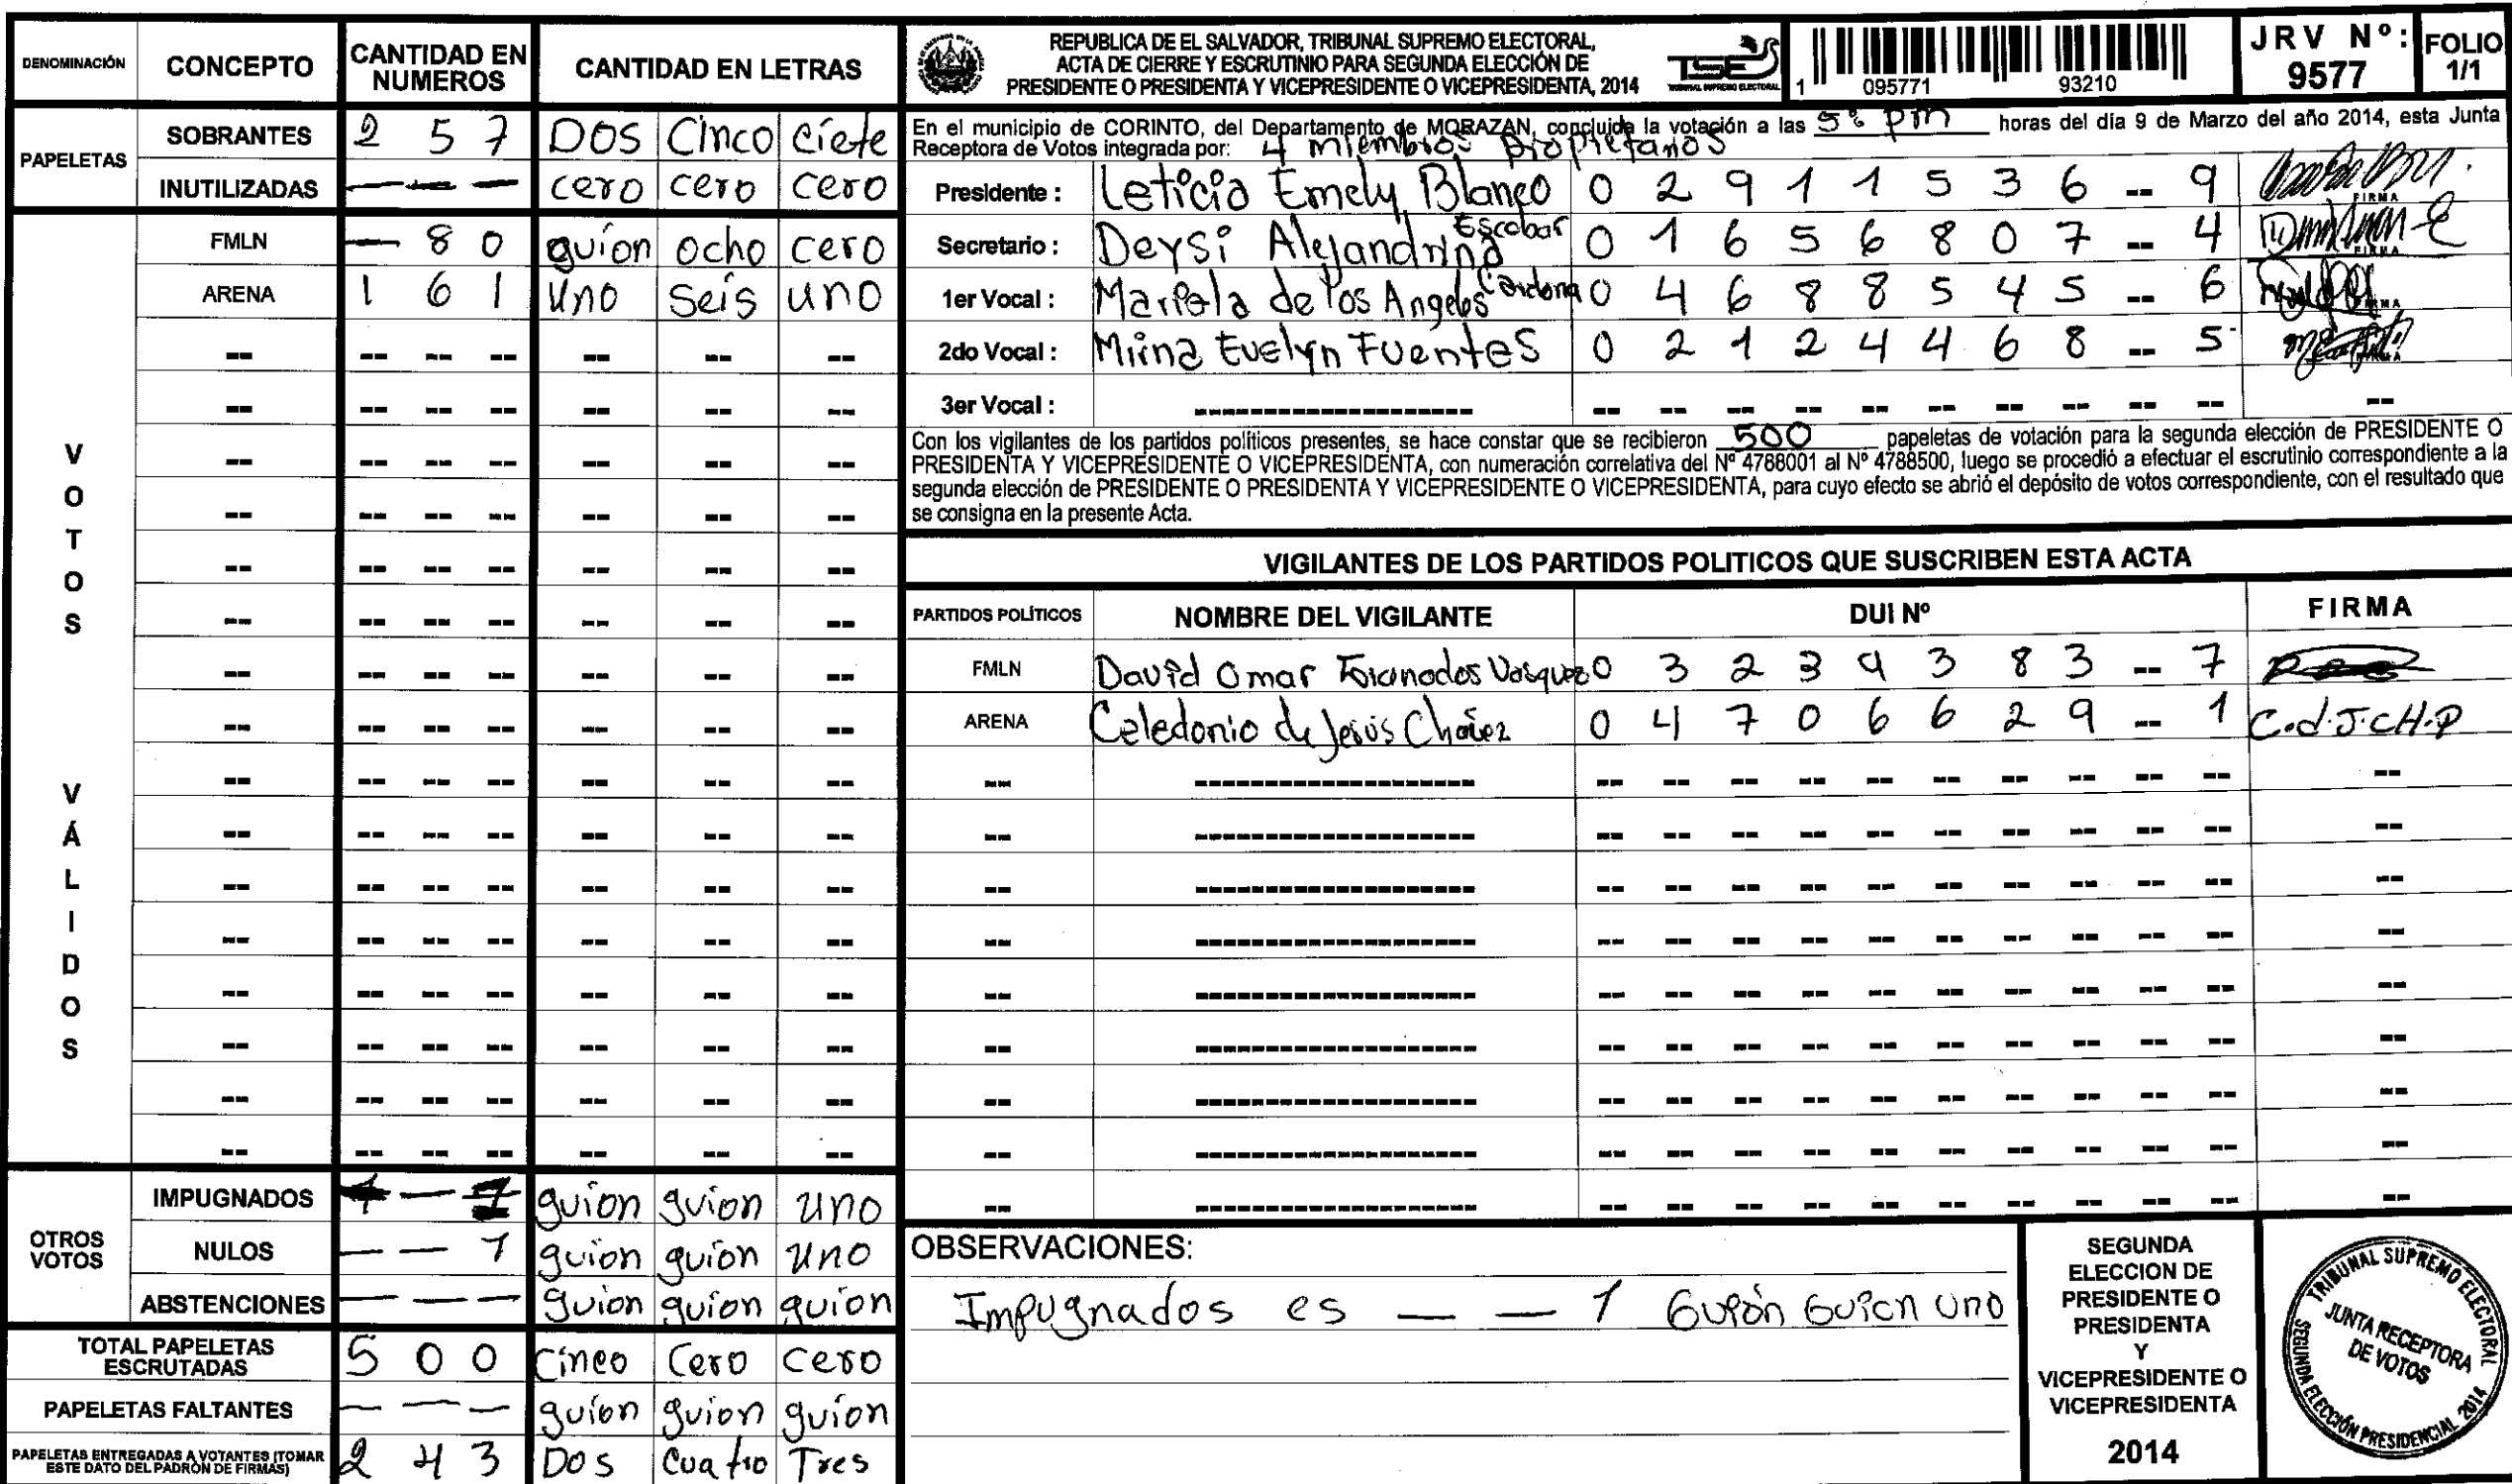 DENOMINACIÓN CONCEPTO CANTIDAD EN NUMEROS CANTIDAD EN LETRAS
PAPELETAS
SOBRANTES 2 5 7 DOS Cinco Ciete
INUTILIZADAS — — — cero cero cero
VOTOS VÁLIDOS
FMLN — 8 0 guion ocho cero
ARENA 1 6 1 Uno Seis uno
OTROS VOTOS
IMPUGNADOS — 1 guion guion uno
NULOS — — 1 guion guion uno
ABSTENCIONES — — — guion guion guion
TOTAL PAPELETAS ESCRUTADAS 5 0 0 Cinco Cero cero
PAPELETAS FALTANTES — — — guion guion guion
PAPELETAS ENTREGADAS A VOTANTES (TOMAR ESTE DATO DEL PADRÓN DE FIRMAS) 2 4 3 Dos Cuatro Tres
REPUBLICA DE EL SALVADOR, TRIBUNAL SUPREMO ELECTORAL,
ACTA DE CIERRE Y ESCRUTINIO PARA SEGUNDA ELECCIÓN DE
PRESIDENTE O PRESIDENTA Y VICEPRESIDENTE O VICEPRESIDENTA, 2014
TSE
TRIBUNAL SUPREMO ELECTORAL
1 095771 93210
JRV Nº: 9577
FOLIO 1/1
En el municipio de CORINTO, del Departamento de MORAZAN, concluida la votación a las 5: pm horas del día 9 de Marzo del año 2014, esta Junta
Receptora de Votos integrada por: 4 miembros propietarios
Presidente : Leticia Emely Blanco 0 2 9 1 1 5 3 6 -- 9 FIRMA
Secretario : Deysi Alejandrina Escobar 0 1 6 5 6 8 0 7 -- 4 FIRMA
1er Vocal : Mariela de los Angeles Cardona 0 4 6 8 8 5 4 5 -- 6 FIRMA
2do Vocal : Mirna Evelyn Fuentes 0 2 1 2 4 4 6 8 -- 5 FIRMA
3er Vocal :
Con los vigilantes de los partidos políticos presentes, se hace constar que se recibieron 500 papeletas de votación para la segunda elección de PRESIDENTE O
PRESIDENTA Y VICEPRESIDENTE O VICEPRESIDENTA, con numeración correlativa del Nº 4788001 al Nº 4788500, luego se procedió a efectuar el escrutinio correspondiente a la
segunda elección de PRESIDENTE O PRESIDENTA Y VICEPRESIDENTE O VICEPRESIDENTA, para cuyo efecto se abrió el depósito de votos correspondiente, con el resultado que
se consigna en la presente Acta.
VIGILANTES DE LOS PARTIDOS POLITICOS QUE SUSCRIBEN ESTA ACTA
PARTIDOS POLÍTICOS NOMBRE DEL VIGILANTE DUI Nº FIRMA
FMLN David Omar Vasquez 0 3 2 3 9 3 8 3 -- 7
ARENA Celedonio de Jesús Chávez 0 4 7 0 6 6 2 9 -- 1 C.d.J.CH.P
OBSERVACIONES:
Impugnados es — — 1 Guion Guion uno
SEGUNDA
ELECCION DE
PRESIDENTE O
PRESIDENTA
Y
VICEPRESIDENTE O
VICEPRESIDENTA
2014
TRIBUNAL SUPREMO ELECTORAL
JUNTA RECEPTORA
DE VOTOS
SEGUNDA ELECCIÓN PRESIDENCIAL 2014